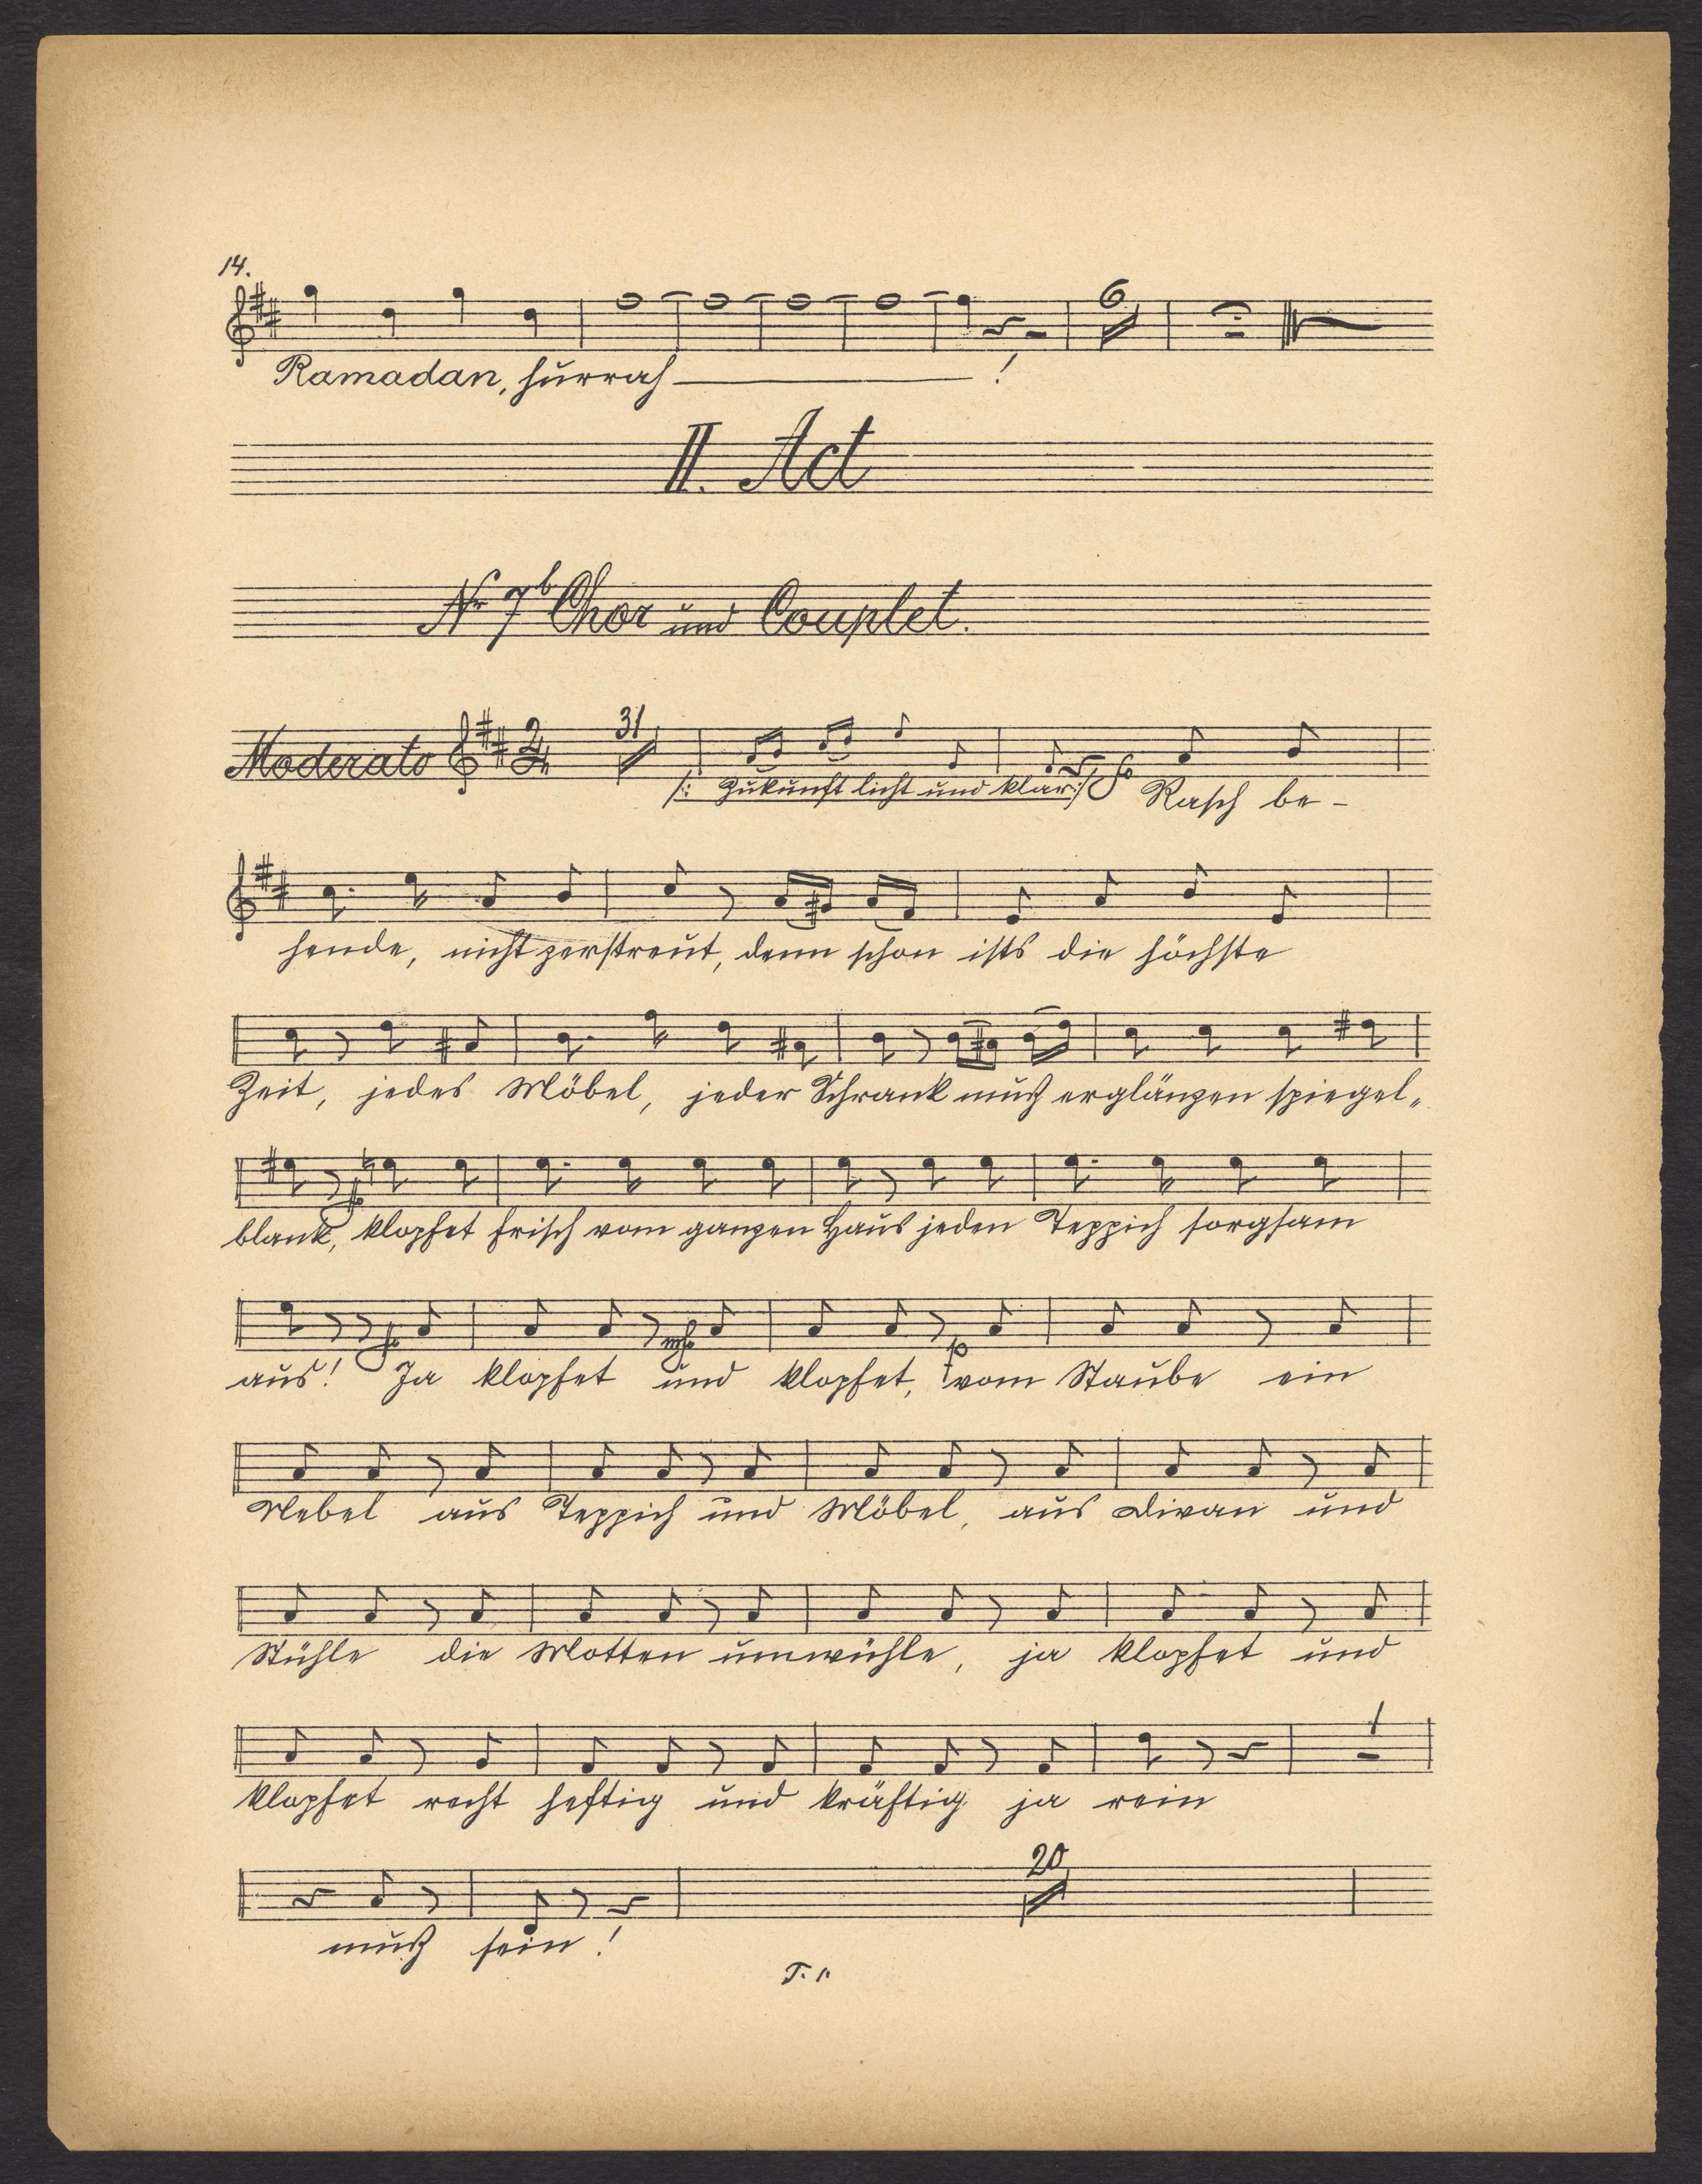 14.
6
Ramadan, hurrah !
II. Act
Nr 7b Chor und Couplet.
31
Moderato 2/4
/: Zukunft licht und klar :/ f Rasch be-
hende, nicht zerstreut, denn schon ists die höchste
Zeit, jedes Möbel, jeder Schrank muß erglänzen spiegel-
blank, f klopfet frisch vom ganzen Haus jeden Teppich sorgsam
aus! f Ja klopfet mf und klopfet, p vom Staube ein
Nebel aus Teppich und Möbel, aus Divan und
Stühle die Motten umwühle, ja klopfet und
1
klopfet recht heftig und kräftig ja rein
20
muß sein!